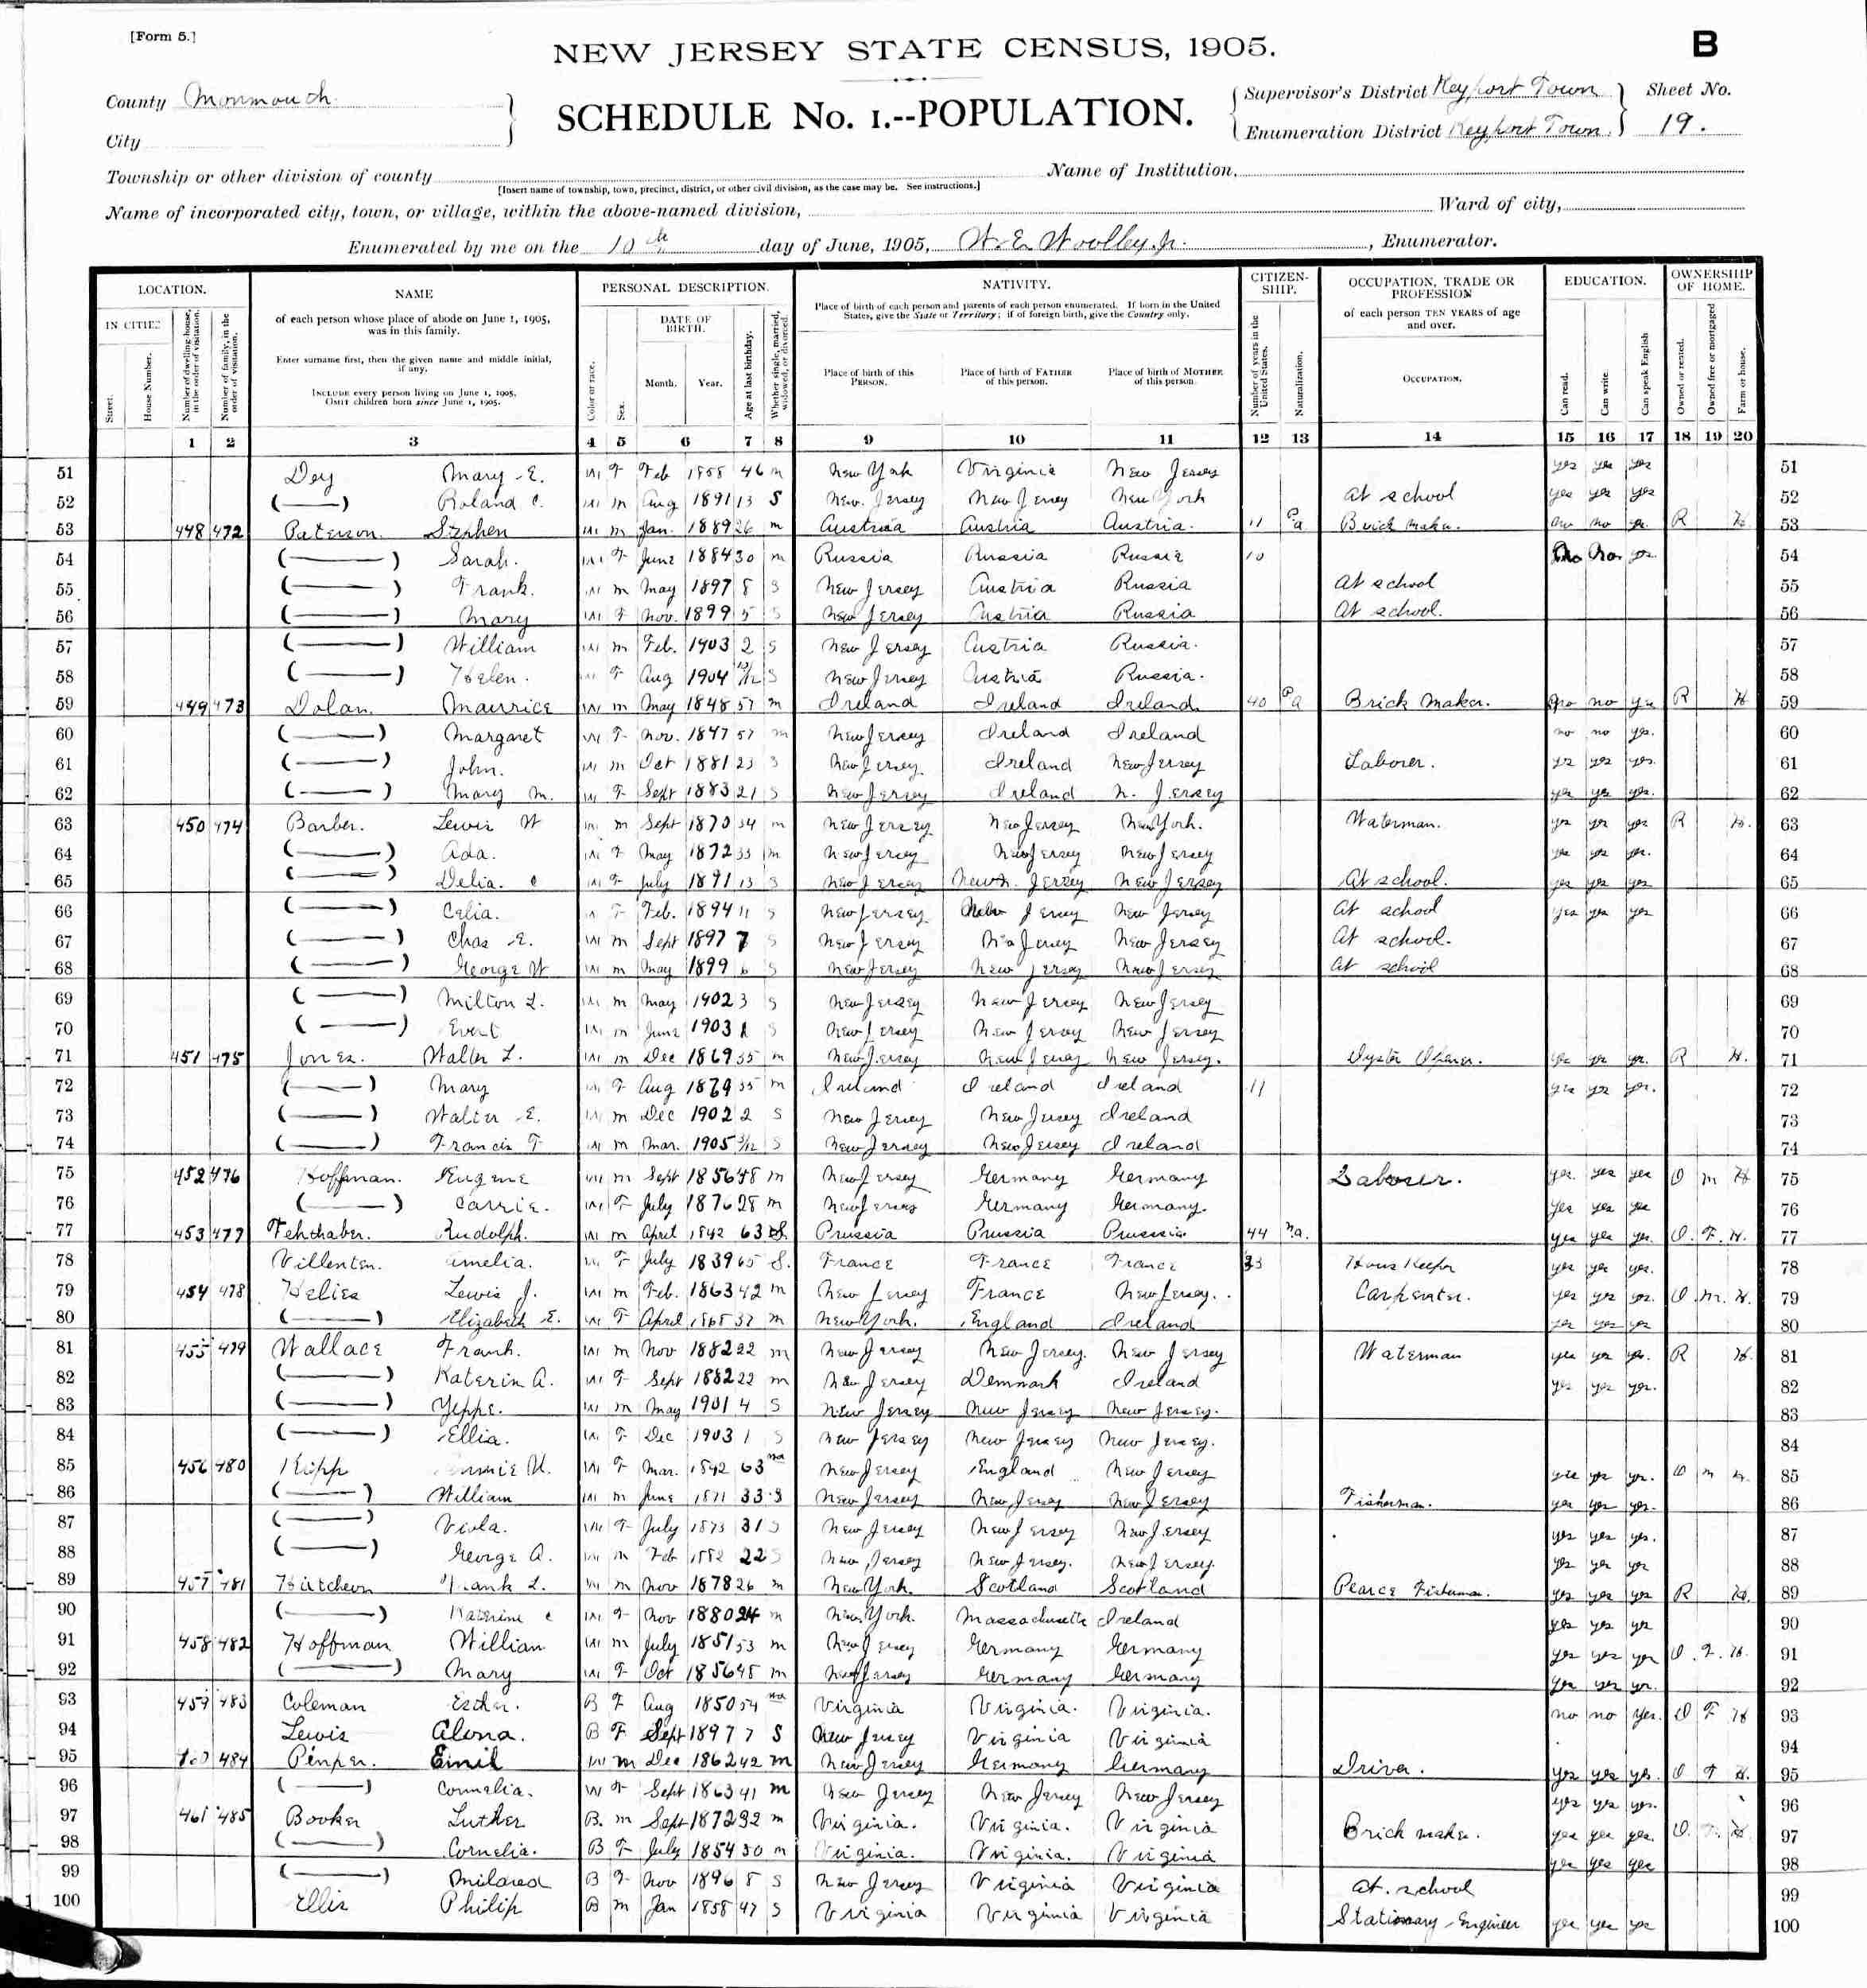 [Form 5.]
NEW JERSEY STATE CENSUS, 1905.
B
County Monmouth
SCHEDULE No. 1.--POPULATION.
Supervisor's District Keyport Town
Sheet No.
City
Enumeration District Keyport Town
19.
Township or other division of county
Name of Institution,
[Insert name of township, town, precinct, district, or other civil division, as the case may be. See instructions.]
Name of incorporated city, town, or village, within the above-named division,
Ward of city,
Enumerated by me on the 10th day of June, 1905, W. E. Woolley Jr. , Enumerator.
LOCATION.
IN CITIES
Street.
House Number.
Number of dwelling-house, in the order of visitation.
Number of family, in the order of visitation.
NAME
of each person whose place of abode on June 1, 1905, was in this family.
Enter surname first, then the given name and middle initial, if any.
INCLUDE every person living on June 1, 1905.
OMIT children born since June 1, 1905.
PERSONAL DESCRIPTION.
Color or race.
Sex.
DATE OF BIRTH.
Month.
Year.
Age at last birthday.
Whether single, married, widowed, or divorced.
NATIVITY.
Place of birth of each person and parents of each person enumerated. If born in the United States, give the State or Territory; if of foreign birth, give the Country only.
Place of birth of this PERSON.
Place of birth of FATHER of this person.
Place of birth of MOTHER of this person.
CITIZEN-SHIP.
Number of years in the United States.
Naturalization.
OCCUPATION, TRADE OR PROFESSION
of each person TEN YEARS of age and over.
OCCUPATION.
EDUCATION.
Can read.
Can write.
Can speak English
OWNERSHIP OF HOME.
Owned or rented.
Owned free or mortgaged
Farm or house.
1 2 3 4 5 6 7 8 9 10 11 12 13 14 15 16 17 18 19 20
51 Dey Mary E. W F Feb 1858 46 m New York Virginia New Jersey yes yes yes 51
52 (——) Roland C. W m Aug 1891 13 S New Jersey New Jersey New York At school yes yes yes 52
53 448 472 Paterson Stephen W m Jan. 1889 26 m Austria Austria Austria. 11 Pa Brick maker. no no yes R H 53
54 (——) Sarah. W F June 1884 30 m Russia Russia Russia 10 No No yes 54
55 (——) Frank. W m May 1897 8 S New Jersey Austria Russia At school 55
56 (——) Mary W F Nov. 1899 5 S New Jersey Austria Russia At school. 56
57 (——) William W m Feb. 1903 2 S New Jersey Austria Russia. 57
58 (——) Helen. W F Aug 1904 S New Jersey Austria Russia. 58
59 449 473 Dolan Maurice W m May 1848 57 m Ireland Ireland Ireland 40 Pa Brick Maker. no no yes R H 59
60 (——) Margaret W F Nov. 1847 57 m New Jersey Ireland Ireland no no yes. 60
61 (——) John. W m Oct 1881 23 S New Jersey Ireland New Jersey Laborer. yes yes yes. 61
62 (——) Mary M. W F Sept 1883 21 S New Jersey Ireland N. Jersey yes yes yes. 62
63 450 474 Barber. Lewis W W m Sept 1870 34 m New Jersey New Jersey New York. Waterman. yes yes yes R H. 63
64 (——) Ada. W F May 1872 33 m New Jersey New Jersey New Jersey yes yes yes. 64
65 (——) Delia. C W F July 1891 13 S New Jersey New Jersey New Jersey At school. yes yes yes 65
66 (——) Celia. W F Feb. 1894 11 S New Jersey New Jersey New Jersey At school yes yes yes 66
67 (——) Chas E. W m Sept 1897 7 S New Jersey New Jersey New Jersey At school. 67
68 (——) George W W m May 1899 6 S New Jersey New Jersey New Jersey At school 68
69 (——) Milton L. W m May 1902 3 S New Jersey New Jersey New Jersey 69
70 (——) Evert W m June 1903 1 S New Jersey New Jersey New Jersey 70
71 451 475 Jones. Walter L. W m Dec 1869 35 m New Jersey New Jersey New Jersey. Oyster Opener. yes yes yes. R H. 71
72 (——) Mary W F Aug 1879 m Ireland Ireland Ireland 11 yes yes yes. 72
73 (——) Walter E. W m Dec 1902 2 S New Jersey New Jersey Ireland 73
74 (——) Francis F W m Mar. 1905 3/12 S New Jersey New Jersey Ireland 74
75 452 476 Hoffman. Eugene W m Sept 1856 48 m New Jersey Germany Germany Laborer. yes. yes yes O m H 75
76 (——) Carrie. W F July 1876 28 m New Jersey Germany Germany. yes yes yes 76
77 453 477 Fehthaber. Rudolph. W m April 1842 63 S. Prussia Prussia Prussia 44 Na. yes yes yes. O. F. H. 77
78 Villenten. Amelia. W F July 1839 65 S. France France France 33 Hous Keeper yes yes yes. 78
79 454 478 Helies Lewis J. W m Feb. 1863 42 m New Jersey France New Jersey. Carpenter. yes yes yes. O. m. H. 79
80 (——) Elizabeth E. W F April 1868 37 m New York. England Ireland yes yes yes 80
81 455 479 Wallace Frank. W m Nov 1882 22 m New Jersey New Jersey. New Jersey Waterman yes yes yes. R H. 81
82 (——) Katerin A. W F Sept 1882 22 m New Jersey Denmark Ireland yes yes yes. 82
83 (——) Yeppe. W m May 1901 4 S New Jersey New Jersey New Jersey. 83
84 (——) Ellia. W F Dec 1903 1 S New Jersey New Jersey New Jersey. 84
85 456 480 Kipp W F Mar. 1842 63 wd New Jersey England New Jersey yes yes yes. O m H. 85
86 (——) William W m June 1871 33 S New Jersey New Jersey New Jersey Fisherman. yes yes yes. 86
87 (——) Viola. W F July 1873 31 S New Jersey New Jersey New Jersey yes yes yes. 87
88 (——) George A. W m Feb 1882 22 S New Jersey New Jersey. New Jersey. yes yes yes 88
89 457 481 Hutcheon Frank L. W m Nov 1878 26 m New York. Scotland Scotland Pearce Fisherman. yes yes yes R H. 89
90 (——) Katerine C W F Nov 1880 24 m New York. Massachusetts Ireland yes yes yes 90
91 458 482 Hoffman William W m July 1851 53 m New Jersey Germany Germany yes yes yes O. F. H. 91
92 (——) Mary W F Oct 1856 48 m New Jersey Germany Germany yes yes yes. 92
93 459 483 Coleman Esther. B F Aug 1850 54 wd Virginia Virginia. Virginia. no no yes. O F H 93
94 Lewis Alona. B F Sept 1897 7 S New Jersey Virginia Virginia 94
95 460 484 Pinper. Emil W m Dec 1862 42 m New Jersey Germany Germany Driver. yes yes yes. O F H. 95
96 (——) Cornelia. W F Sept 1863 41 m New Jersey New Jersey New Jersey yes yes yes. 96
97 461 485 Booker Luther B. m Sept 1872 32 m Virginia. Virginia. Virginia Brick maker. yes yes yes. O. F. H 97
98 (——) Cornelia. B F July 1854 50 m Virginia. Virginia. Virginia yes yes yes 98
99 (——) Mildred B F Nov 1896 8 S New Jersey Virginia Virginia at. school 99
100 Ellis Philip B m Jan 1858 47 S Virginia Virginia Virginia Stationary Engineer yes yes yes 100